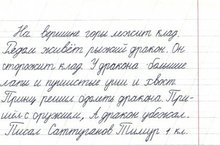 На вершине горы лежит клад.
Рядом живёт рыжий дракон. Он
сторожит клад. У дракона большие
лапы и пушистые уши и хвост.
Принц решил одолеть дракона. При-
шёл с оружием, А дракон убежал.
Писал Саттупанов Тимур 1 кл.